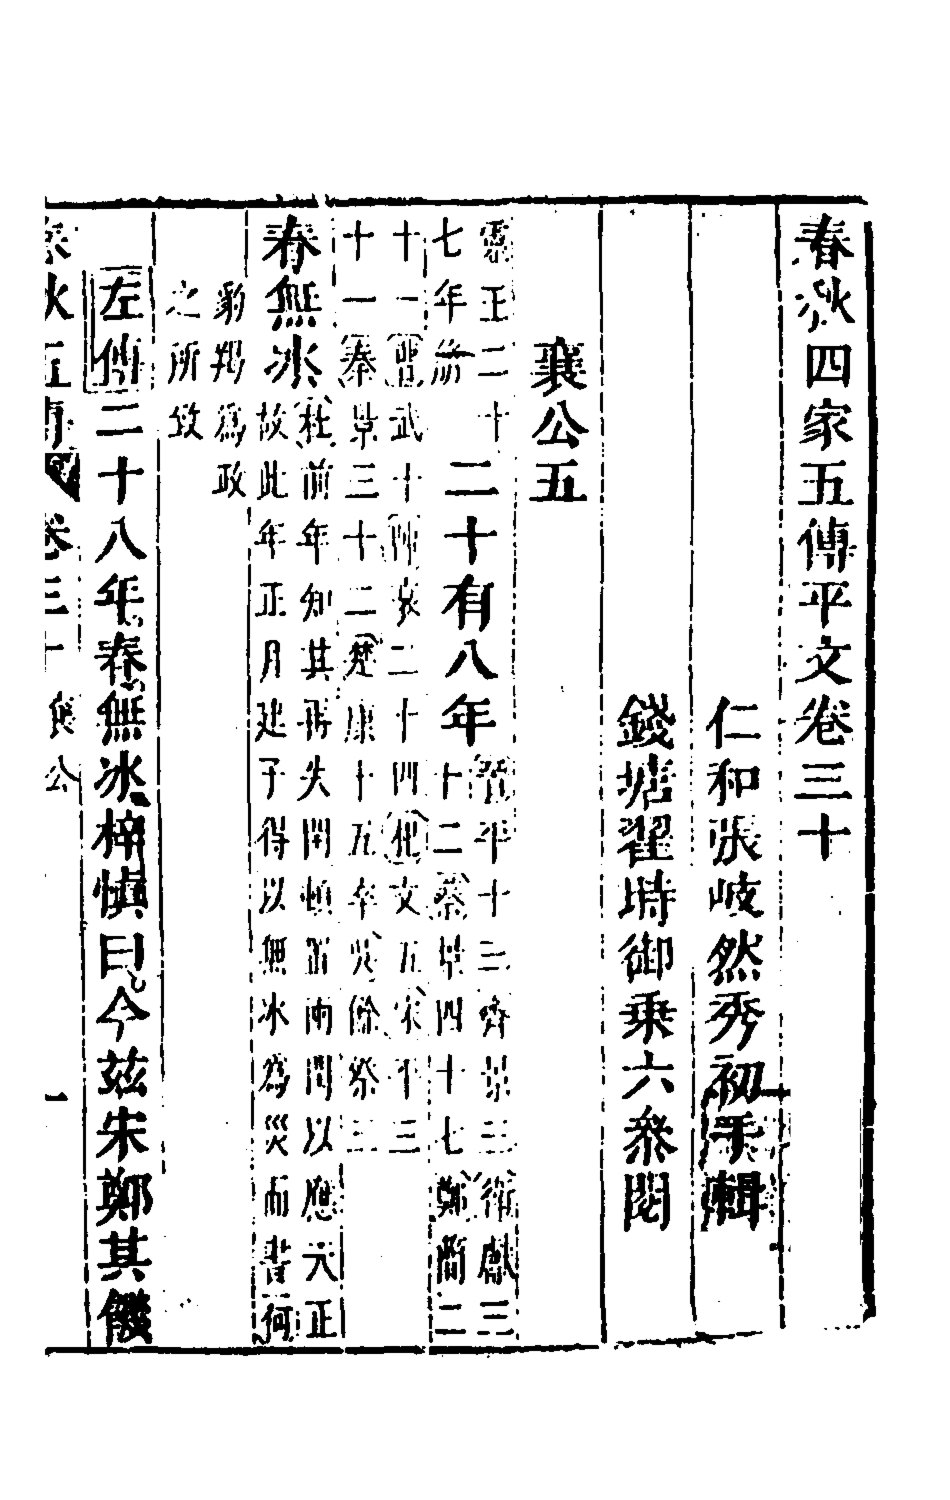 春秋四家五傳平文卷三十
仁和張岐然秀初手輯
錢塘翟時御乘六叅閱
襄公五
靈王二十
七年
二十有八年
晉平十三齊景三衛獻三
十二蔡景四十七鄭簡二
十一曹武十陳哀二十四杞文五宋平三
十一秦景三十二楚康十五卒吳餘祭三
春無冰
杜前年知其再失閏頓置兩閏以應天正
故此年正月建子得以無冰為災而書何
豹羯為政
之所致
左傳二十八年春無冰梓慎曰今茲宋鄭其饑
春秋五傳
卷三十 襄公
一